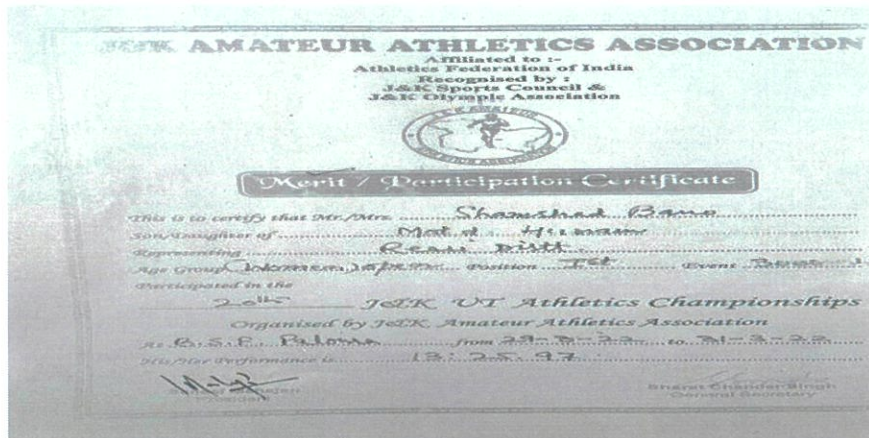 J&K AMATEUR ATHLETICS ASSOCIATION
Affiliated to :-
Athletics Federation of India
Recognised by :
J&K Sports Council &
J&K Olympic Association
Merit / Participation Certificate
This is to certify that Mr./Mrs. Shamshad Bano
Son/Daughter of Mohd. Hussain
Representing Reasi Distt.
Age Group Women Position Ist Event
Participated in the
20th J&K UT Athletics Championships
Organised by J&K Amateur Athletics Association
At from to 31-3-22
His/Her Performance is 13:25.97
President
Bharat Chander Singh
General Secretary